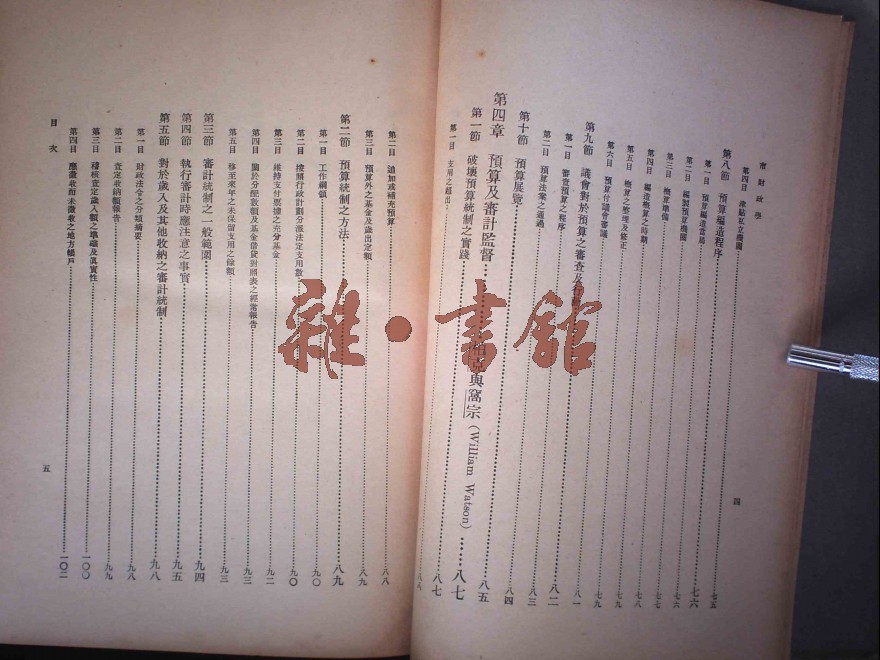 市財政學
四
第四目
獨立機關……七五
第八節 預算編造程序……七六
第一目 預算編造當局……七六
第二目 編製預算機關……七六
第三目 概算準備……七七
第四目 編造概算之時期……七八
第五目 概算之整理及修正……七九
第六目 預算付議會審議……七九
第九節 議會對於預算之審查及……八一
第一目 審查預算之程序……八二
第二目 預算法案之通過……八三
第十節 預算展覽……八四
第四章 預算及審計監督……八五
與窩宗(William Watson)……八七
第一節 破壞預算統制之實踐……八七
第一目 支用之超出……八八
第二目 追加或補充預算……八八
第三目 預算外之基金及歲出定額……八九
第二節 預算統制之方法……八九
第一目 工作綱領……九〇
第二目 按照行政計劃分派法定支用數……九〇
第三目 維持支付票據之充分基金……九二
第四目 關於分配數額及基金借貸對照表之經常報告……九三
第五目 移至來年之未保留支用之餘額……九三
第三節 審計統制之一般範圍……九四
第四節 執行審計時應注意之事實……九五
第五節 對於歲入及其他收納之審計統制……九八
第一目 財政法令之分類摘要……九八
第二目 查定收納額報告……九九
第三目 稽核查定歲入額之準確及真實性……一〇〇
第四目 應徵收而未徵收之地方帳戶……一〇二
目次
五
雜·書館